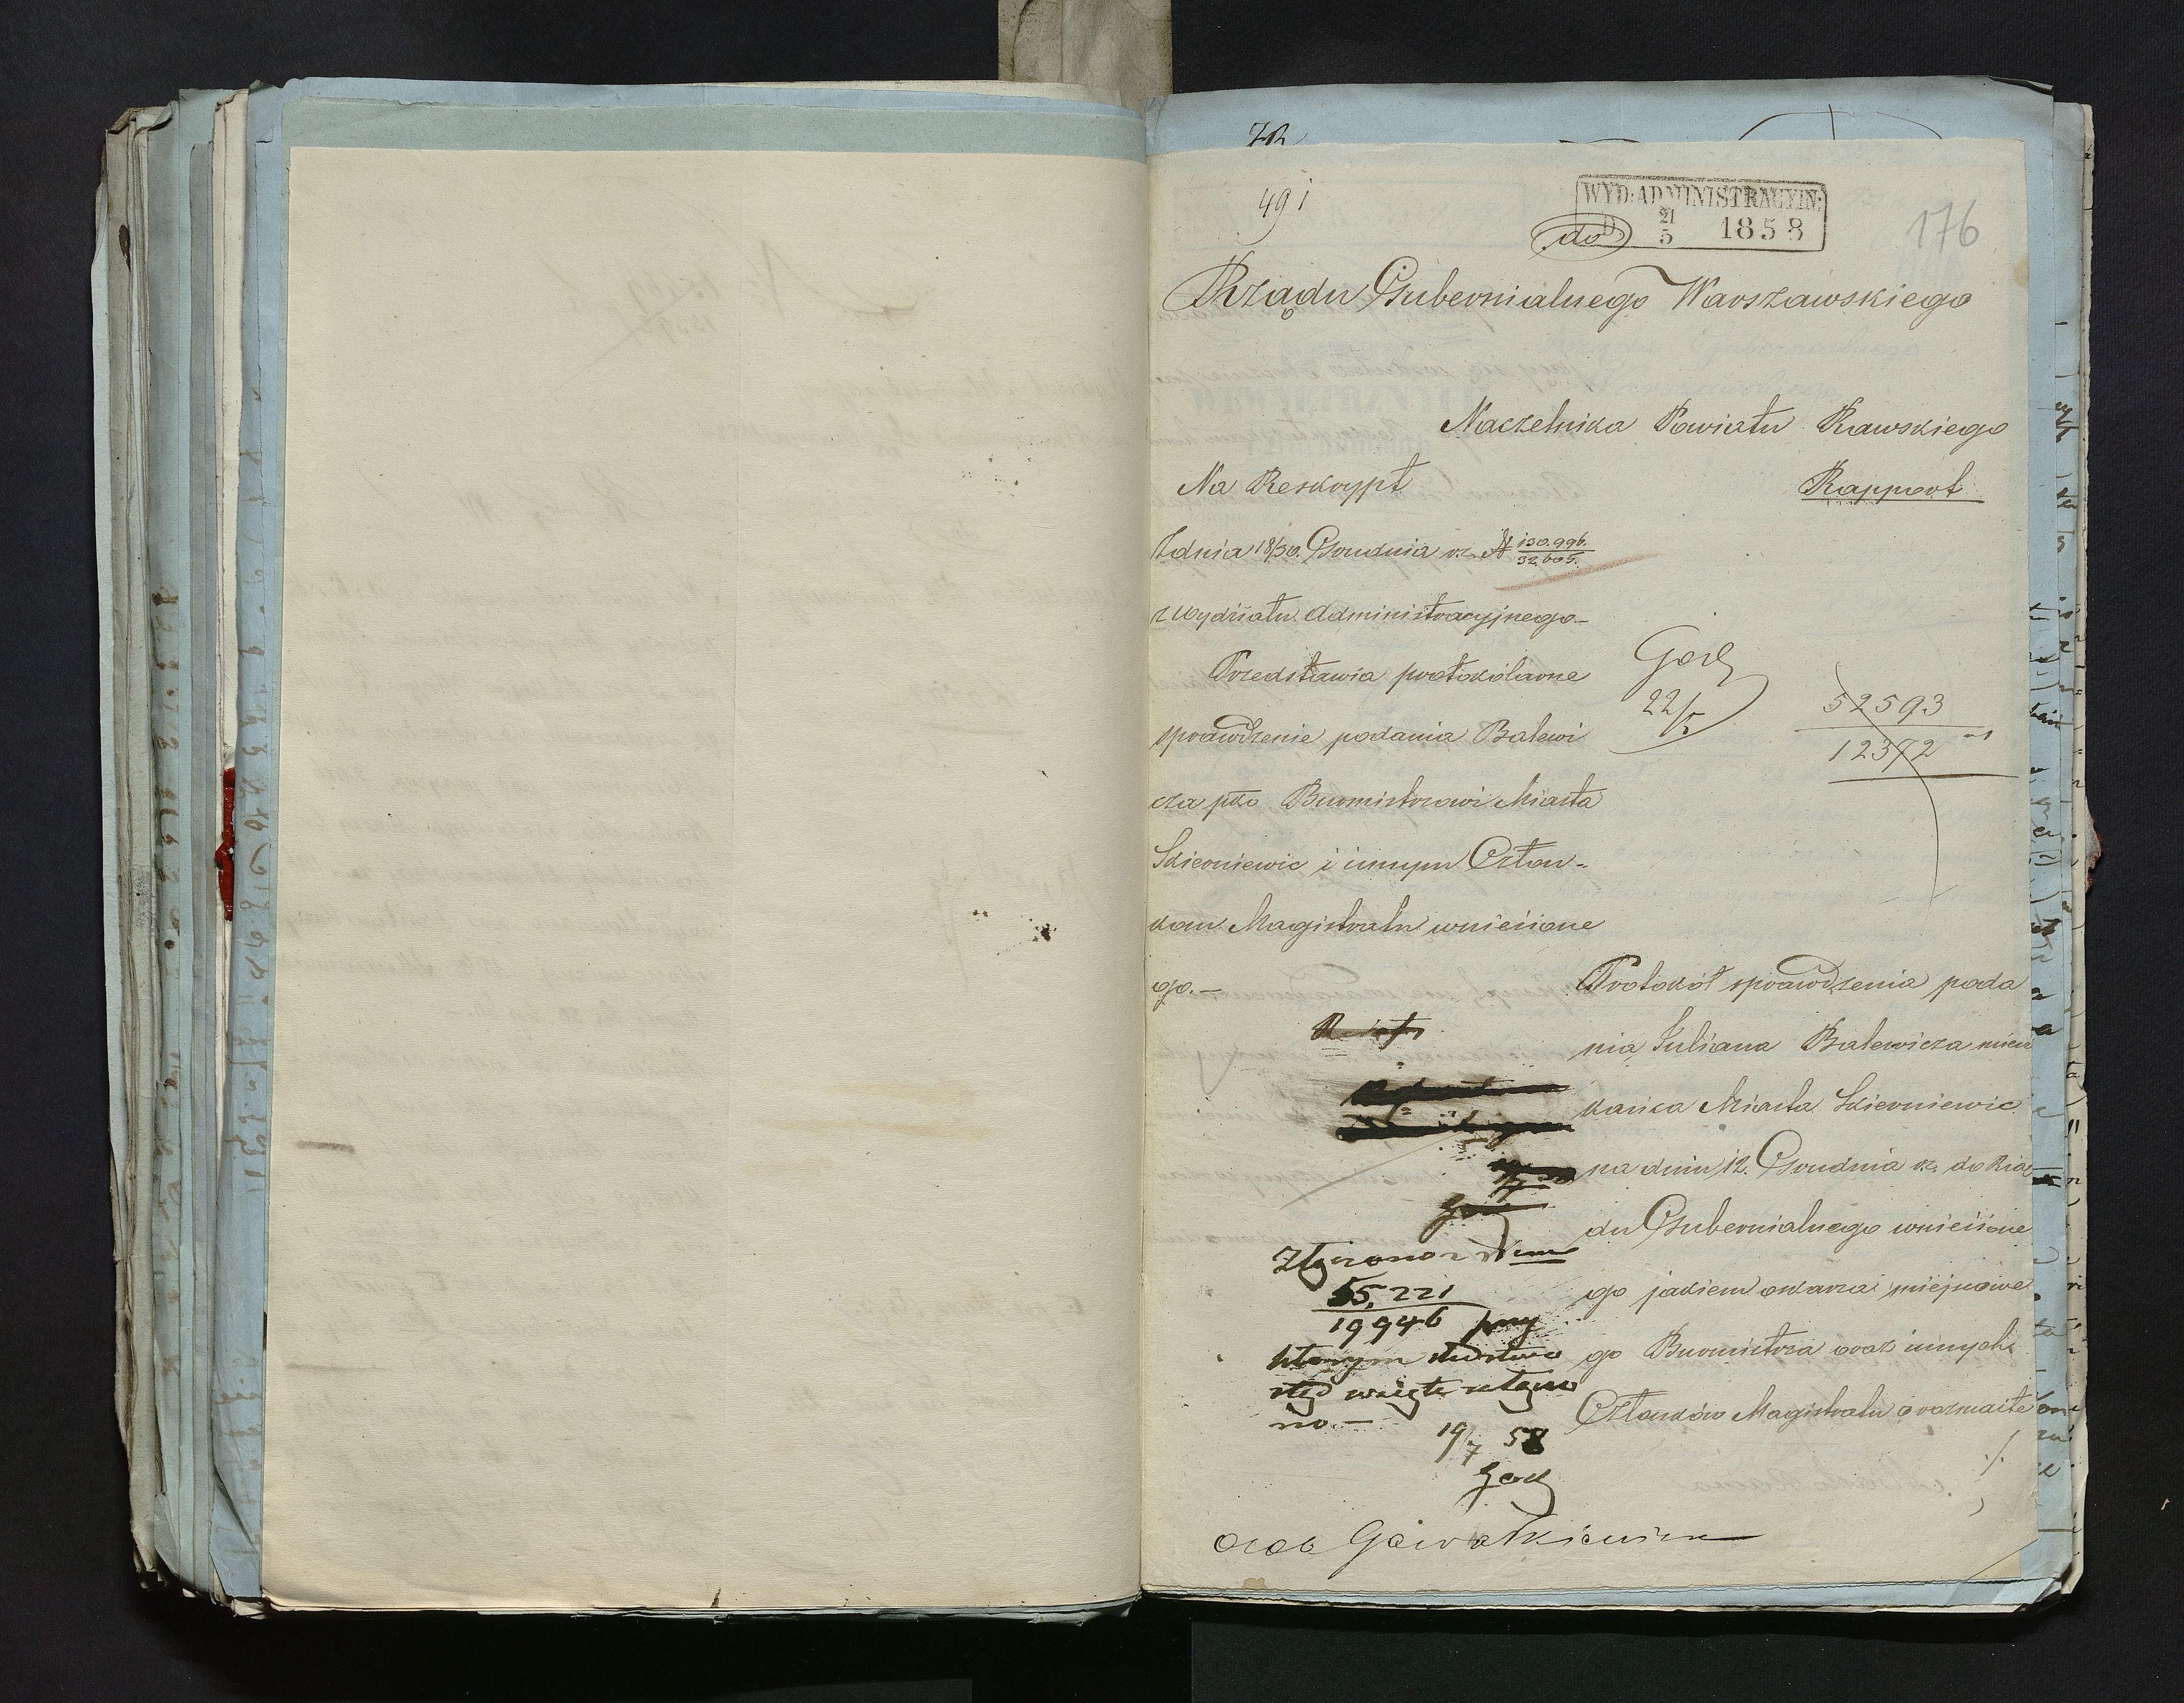 491
WYD: ADMINISTRACYIN:
D 21/5 1858
do
176
Rządu Gubernialnego Warszawskiego
Naczelnika Powiatu Rawskiego
Na Reskrypt
Rapport
Zdnia 18/30. Grudnia rz. N 130.996./32.605.
z Wydziału Administracyjnego
Przedstawia protokólarne
sprawdzenie podania Balewi
cza pko Burmistrzowi Miasta
Skierniewic i innym Człon-
kom Magistratu wniesione
go. –
22/5
52593
12372
Protokół sprawdzenia poda
nia Juliana Balewicza miesz
kańca Miasta Skierniewic
na dniu 12. Grudnia rz. do Rzą
du Gubernialnego wniesione
go jakiem oskarża miejscowe
go Burmistrza oraz innych
Członków Magistratu o rozmaite
./.
Złączono z Nrem
55,221
19946 przy
którym śledztwo
stąd wzięte złączo
no. –
19/7 58